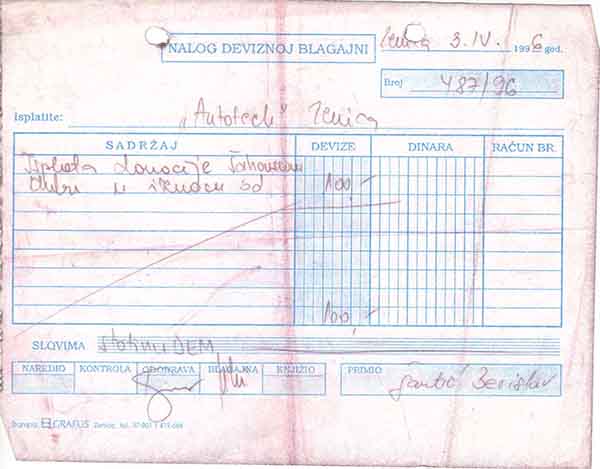 NALOG DEVIZNOJ BLAGAJNI
Zenica 3. IV. 1996 god.
Broj 487/96
Isplatite: "Autotech" Zenica
SADRŽAJ DEVIZE DINARA RAČUN BR.
Isplata donacije Šahovskom
klubu u iznosu od 100.-
100.-
SLOVIMA stotinu DEM
NAREDIO KONTROLA ODOBRAVA BLAGAJNA KNJIŽIO PRIMIO
Berislav
Štampa: GRAFUS Zenica, tel.